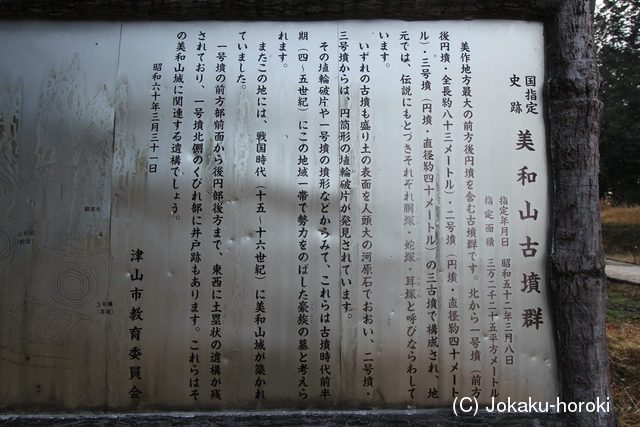 国指定
史跡
美和山古墳群
指定年月日 昭和五十二年三月八日
指定面積 三万二千二十五平方メートル
美作地方最大の前方後円墳を含む古墳群です。北から一号墳（前方
後円墳・全長約八十三メートル）・二号墳（円墳・直径約四十メート
ル）・三号墳（円墳・直径約四十メートル）の三古墳で構成され、地
元では、伝説にもとづきそれぞれ胴塚・蛇塚・耳塚と呼びならわして
います。
いずれの古墳も盛り土の表面を人頭大の河原石でおおい、二号墳・
三号墳からは、円筒形の埴輪破片が発見されています。
その埴輪破片や一号墳の墳形などからみて、これらは古墳時代前半
期（四～五世紀）にこの地域一帯で勢力をのばした豪族の墓と考えら
れます。
またこの地には、戦国時代（十五～十六世紀）に美和山城が築かれ
ていました。
一号墳の前方部前面から後円部後方まで、東西に土塁状の遺構が残
されており、一号墳北側のくびれ部に井戸跡もあります。これらはそ
の美和山城に関連する遺構でしょう。
昭和六十年三月三十一日
津山市教育委員会
3号墳
(耳塚)
2号墳
(蛇塚)
(C) Jokaku-horoki